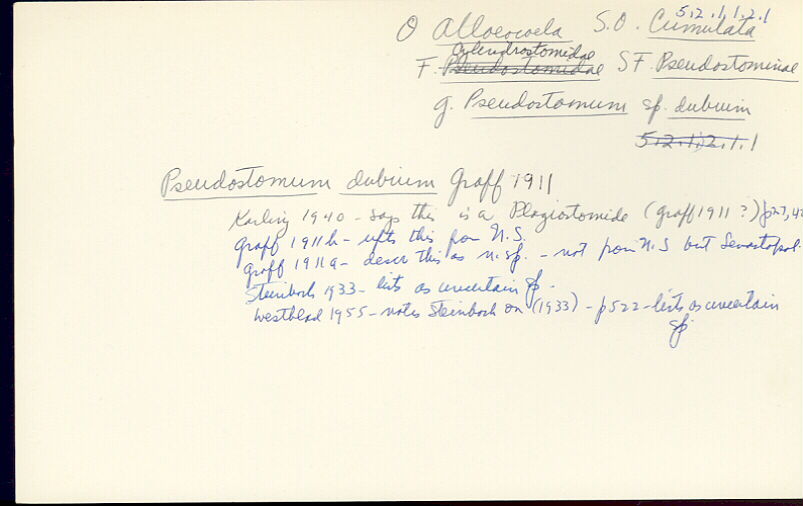 5.2.1.1.2.1
O Alloeocoela S.O. Cumulata
Cylindrostomidae
F. Pseudostomidae SF. Pseudostominae
g. Pseudostomum sp. dubium
5.2.1.2.1.1
Pseudostomum dubium Graff 1911
Karling 1940 - says this is a Plagiostomide (Graff 1911?) p27,
Graff 1911b - cites this for N.S.
Graff 1911a - descr this as n.sp. - not from N.S but Sevastopol.
Steinbock 1933 - lists as uncertain sp.
Westblad 1955 - notes Steinbock on (1933) - p522 - lists as uncertain
sp.